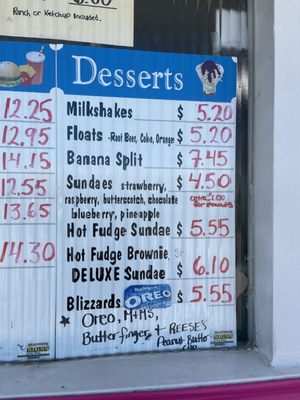 Ranch, or Ketchup Included..
Desserts
12.25 Milkshakes $ 5.20
12.95 Floats -Root Beer, Coke, Orange $ 5.20
14.15 Banana Split $ 7.45
12.55 Sundaes strawberry, $ 4.50
raspberry, butterscotch, chocolate extra 1.00
blueberry, pineapple for peanuts
13.65 Hot Fudge Sundae $ 5.55
14.30 Hot Fudge Brownie
DELUXE Sundae $ 6.10
Blizzards OREO $ 5.55
Oreo, M+M'S,
Butterfinger, + REESE'S
Peanut Butter
cup